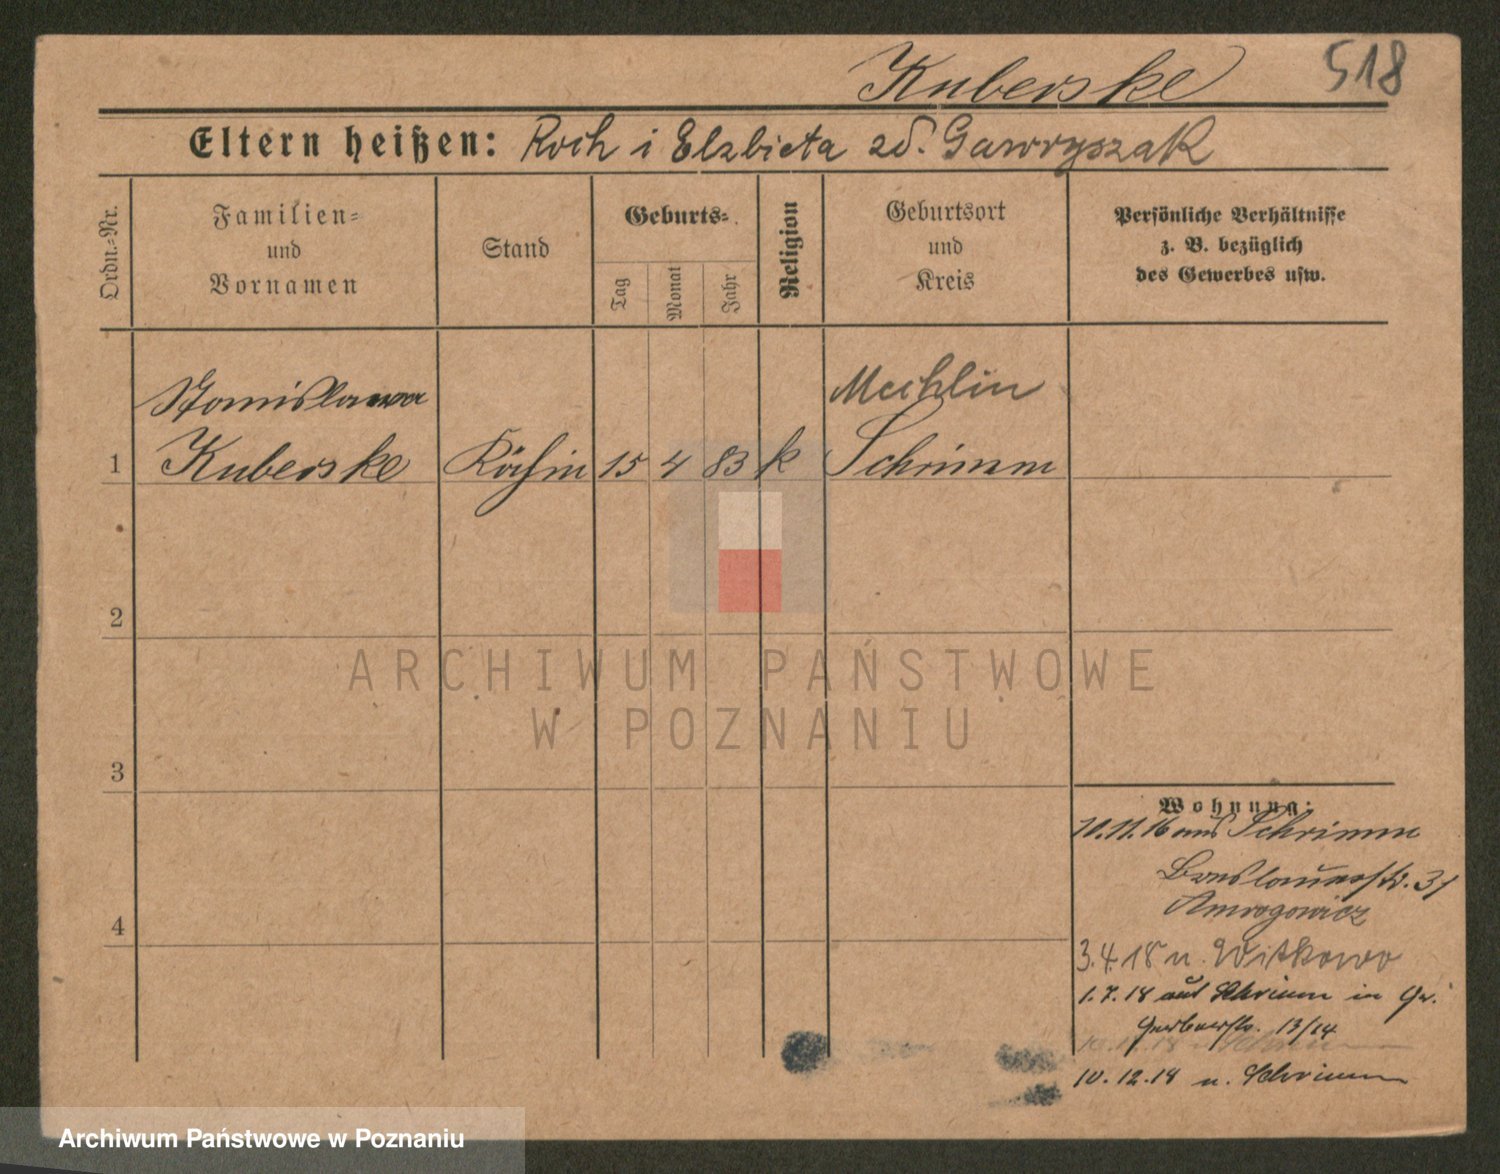 Kuberske
518
Eltern heißen: Roch i Elzbieta zd. Gawryszak
Ordn.-Nr.
Familien-
und
Vornamen
Stand
Geburts-
Tag
Monat
Jahr
Religion
Geburtsort
und
Kreis
Persönliche Verhältnisse
z. B. bezüglich
des Gewerbes usw.
Stanislawa
Mechlin
1 Kuberske Köchin 15 4 83 k Schrimm
2
3
4
Wohnung:
10.11.16 aus Schrimm
Breslauerstr. 31
Amrogowicz
3.4.18 n. Witkowo
1.7.18 aus Schrimm in
Gerberstr. 13/14
10.12.18 n. Schrimm
ARCHIWUM PAŃSTWOWE
W POZNANIU
Archiwum Państwowe w Poznaniu